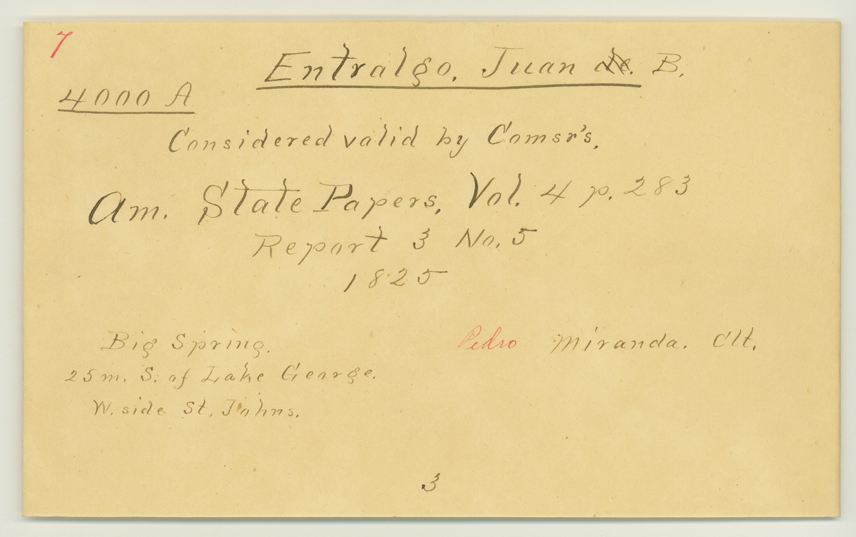 7
Entralgo, Juan de. B.
4000 A
Considered valid by Comsr's.
Am. State Papers, Vol. 4 p. 283
Report 3 No. 5
1825
Big Spring. Pedro Miranda. Clt.
25 m. S. of Lake George.
W. side St. Johns.
3